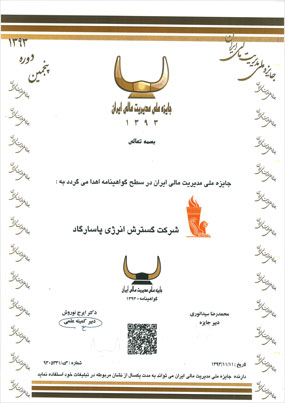 ۱۳۹۳
دوره
پنجمین
جایزه ملی مدیریت مالی ایران
جایزه ملی مدیریت مالی ایران
۱ ۳ ۹ ۳
بسمه تعالی
جایزه ملی مدیریت مالی ایران در سطح گواهینامه اهدا می گردد به :
شرکت گسترش انرژی پاسارگاد
جایزه ملی مدیریت مالی ایران
گواهینامه - ۱۳۹۳
محمدرضا سیدالنوری
دبیر جایزه
دکتر ایرج نوروش
دبیر کمیته علمی
تاریخ : ۱۳۹۳/۱۱/۱۱
شماره :
دارنده جایزه ملی مدیریت مالی ایران می تواند به مدت یکسال از نشان مربوطه در تبلیغات خود استفاده نماید